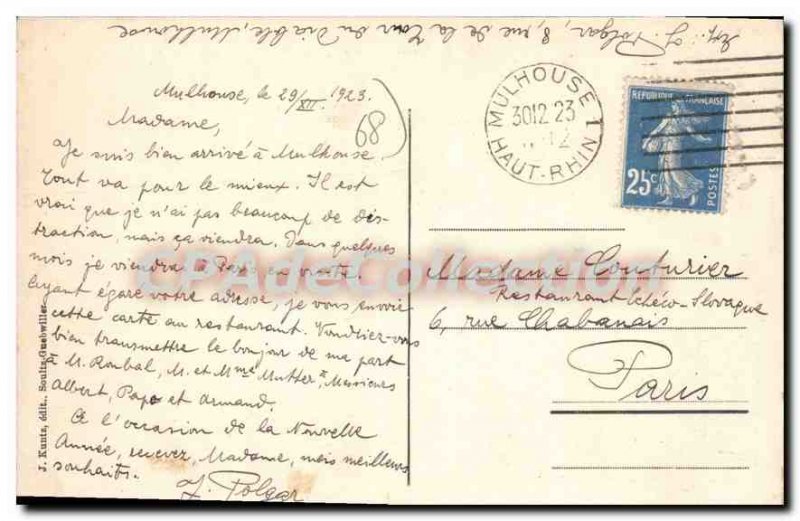 Exp. J. Polgar, 8, rue de la Tour du Diable, Mulhouse
Mulhouse, le 29/XII. 1923.
68
Madame,
Je suis bien arrivé à Mulhouse.
Tout va pour le mieux. Il est
vrai que je n'ai pas beaucoup de dis-
traction, mais ça viendra. Dans quelques
mois je viendrai à Paris en visite.
Ayant égaré votre adresse, je vous envoie
cette carte au restaurant. Voudriez-vous
bien transmettre le bonjour de ma part
à M. Roubal, M. et Mme Mutter, Messieurs
Albert, Pape et Armand.
A l'occasion de la Nouvelle
Année, recevez, Madame, mes meilleurs
souhaits.
J. Polgar
J. Kuntz, édit., Soultz-Guebwiller
MULHOUSE 1
3012 23
HAUT-RHIN
REPUBLIQUE FRANÇAISE
25c
POSTES
Madame Couturier
Restaurant Tchéco-Slovaque
6, rue Chabanais
Paris
CPADeCollection